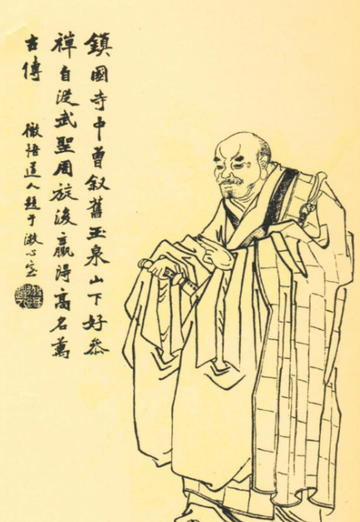 鎮國寺中曾敘舊玉泉山下好參
禅自從武聖周旋後贏得高名萬
古傳
徹悟道人題于漱心室